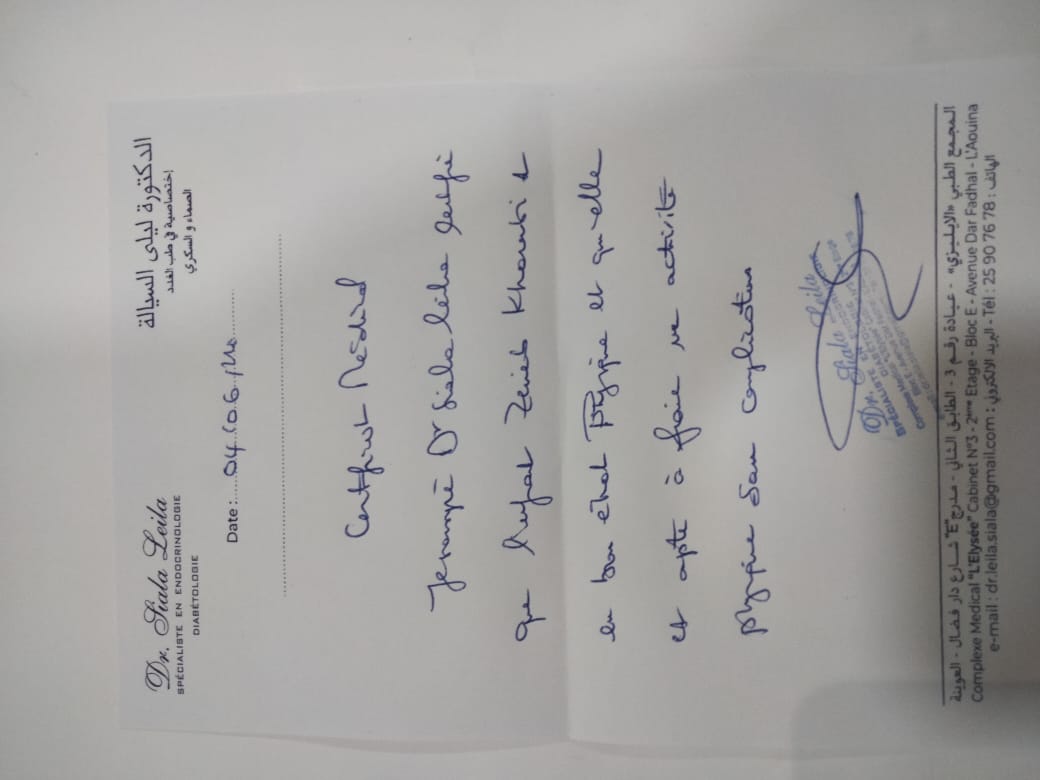 Dr. Siala Leila
SPÉCIALISTE EN ENDOCRINOLOGIE
DIABÉTOLOGIE
الدكتورة ليلى السيالة
إختصاصية في طب الغدد
الصماء و السكري
Date :
Certificat Médical
Dr Siala Leila
que Zeineb
en bon état Physique et qu'elle
et apte à faire activité
physique sans complications
Dr. Siala Leila
SPÉCIALISTE
المجمع الطبي «الإيليزي» - عيادة رقم 3 - الطابق الثاني - مدرج "E" شارع دار فضال - العوينة
Complexe Medical "L'Elysée" Cabinet N°3 - 2ème Etage - Bloc E - Avenue Dar Fadhal - L'Aouina
e-mail : dr.leila.siala@gmail.com : البريد الالكتروني - Tél : 25 90 76 78 : الهاتف